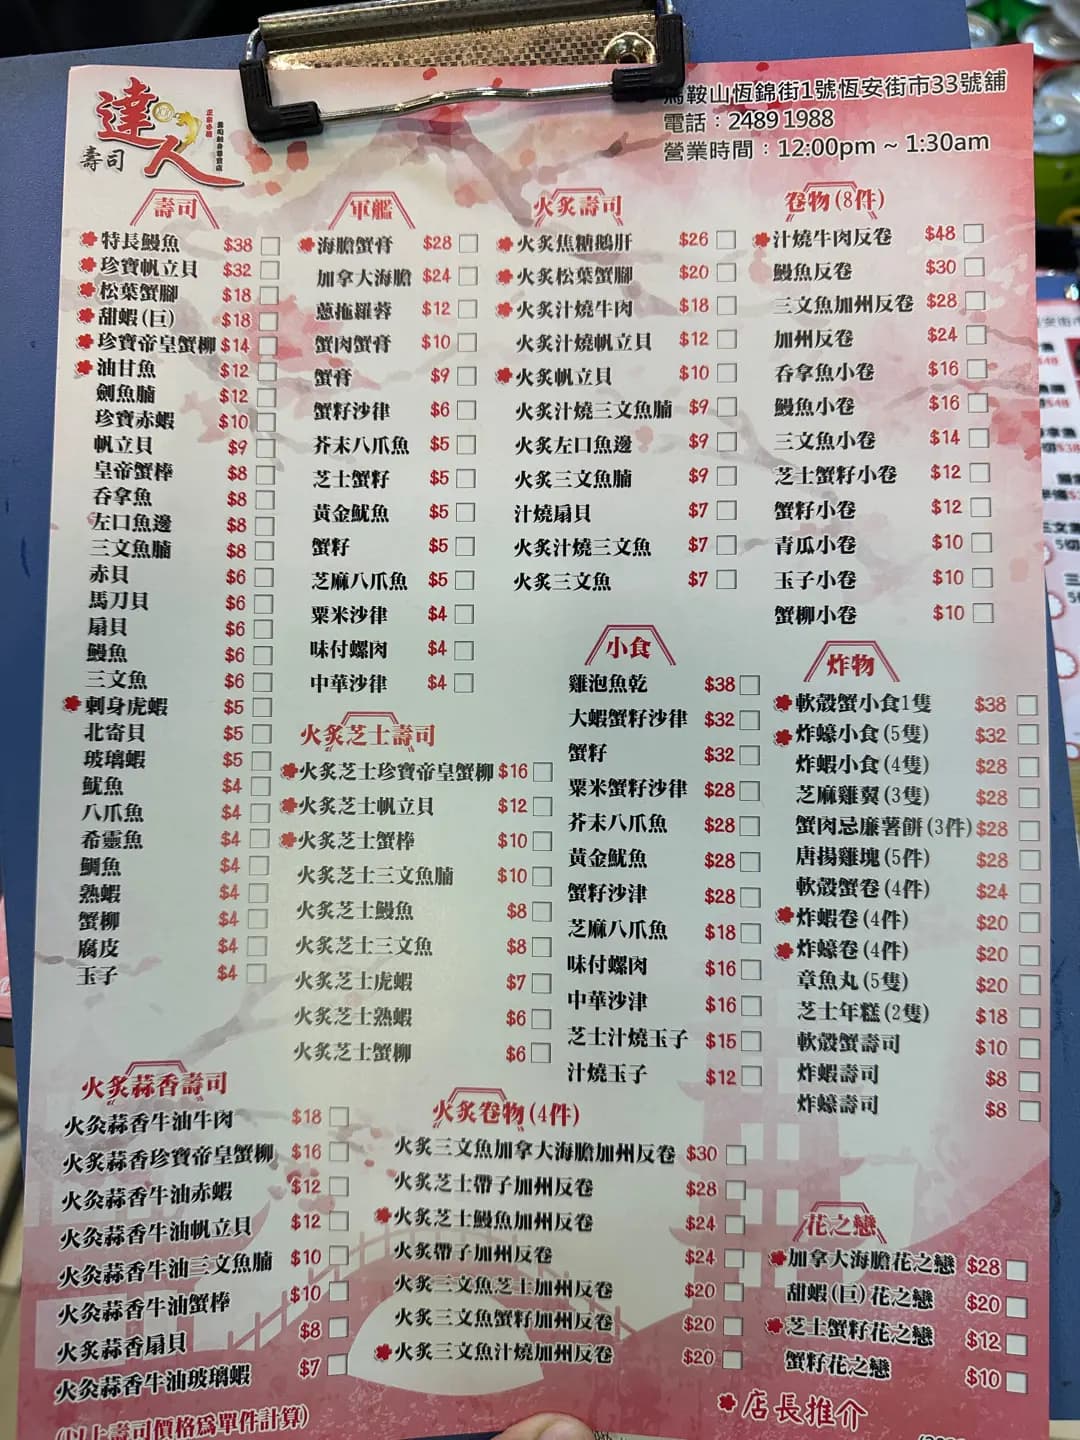 達人
壽司
馬鞍山恆錦街1號恆安街市33號舖
電話：2489 1988
營業時間：12:00pm ~ 1:30am
壽司
特長鰻魚 $38
珍寶帆立貝 $32
松葉蟹腳 $18
甜蝦(巨) $18
珍寶帝皇蟹柳 $14
油甘魚 $12
劍魚腩 $12
珍寶赤蝦 $10
帆立貝 $9
皇帝蟹棒 $8
吞拿魚 $8
左口魚邊 $8
三文魚腩 $8
赤貝 $6
馬刀貝 $6
扇貝 $6
鰻魚 $6
三文魚 $6
刺身虎蝦 $5
北寄貝 $5
玻璃蝦 $5
魷魚 $4
八爪魚 $4
希靈魚 $4
鯛魚 $4
熟蝦 $4
蟹柳 $4
腐皮 $4
玉子 $4
軍艦
海膽蟹膏 $28
加拿大海膽 $24
蔥拖羅蓉 $12
蟹肉蟹膏 $10
蟹膏 $9
蟹籽沙律 $6
芥末八爪魚 $5
芝士蟹籽 $5
黃金魷魚 $5
蟹籽 $5
芝麻八爪魚 $5
粟米沙律 $4
味付螺肉 $4
中華沙律 $4
火炙壽司
火炙焦糖鵝肝 $26
火炙松葉蟹腳 $20
火炙汁燒牛肉 $18
火炙汁燒帆立貝 $12
火炙帆立貝 $10
火炙汁燒三文魚腩 $9
火炙左口魚邊 $9
火炙三文魚腩 $9
汁燒扇貝 $7
火炙汁燒三文魚 $7
火炙三文魚 $7
卷物(8件)
汁燒牛肉反卷 $48
鰻魚反卷 $30
三文魚加州反卷 $28
加州反卷 $24
吞拿魚小卷 $16
鰻魚小卷 $16
三文魚小卷 $14
芝士蟹籽小卷 $12
蟹籽小卷 $12
青瓜小卷 $10
玉子小卷 $10
蟹柳小卷 $10
火炙芝士壽司
火炙芝士珍寶帝皇蟹柳 $16
火炙芝士帆立貝 $12
火炙芝士蟹棒 $10
火炙芝士三文魚腩 $10
火炙芝士鰻魚 $8
火炙芝士三文魚 $8
火炙芝士虎蝦 $7
火炙芝士熟蝦 $6
火炙芝士蟹柳 $6
小食
雞泡魚乾 $38
大蝦蟹籽沙律 $32
蟹籽 $32
粟米蟹籽沙律 $28
芥末八爪魚 $28
黃金魷魚 $28
蟹籽沙津 $28
芝麻八爪魚 $18
味付螺肉 $16
中華沙津 $16
芝士汁燒玉子 $15
汁燒玉子 $12
炸物
軟殼蟹小食1隻 $38
炸蠔小食(5隻) $32
炸蝦小食(4隻) $28
芝麻雞翼(3隻) $28
蟹肉忌廉薯餅(3件) $28
唐揚雞塊(5件) $28
軟殼蟹卷(4件) $24
炸蝦卷(4件) $20
炸蠔卷(4件) $20
章魚丸(5隻) $20
芝士年糕(2隻) $18
軟殼蟹壽司 $10
炸蝦壽司 $8
炸蠔壽司 $8
火炙蒜香壽司
火灸蒜香牛油牛肉 $18
火炙蒜香珍寶帝皇蟹柳 $16
火灸蒜香牛油赤蝦 $12
火灸蒜香牛油帆立貝 $12
火灸蒜香牛油三文魚腩 $10
火灸蒜香牛油蟹棒 $10
火炙蒜香扇貝 $8
火灸蒜香牛油玻璃蝦 $7
(以上壽司價格為單件計算)
火炙卷物(4件)
火炙三文魚加拿大海膽加州反卷 $30
火炙芝士帶子加州反卷 $28
火炙芝士鰻魚加州反卷 $24
火炙帶子加州反卷 $24
火炙三文魚芝士加州反卷 $20
火炙三文魚蟹籽加州反卷 $20
火炙三文魚汁燒加州反卷 $20
花之戀
加拿大海膽花之戀 $28
甜蝦(巨)花之戀 $20
芝士蟹籽花之戀 $12
蟹籽花之戀 $10
店長推介